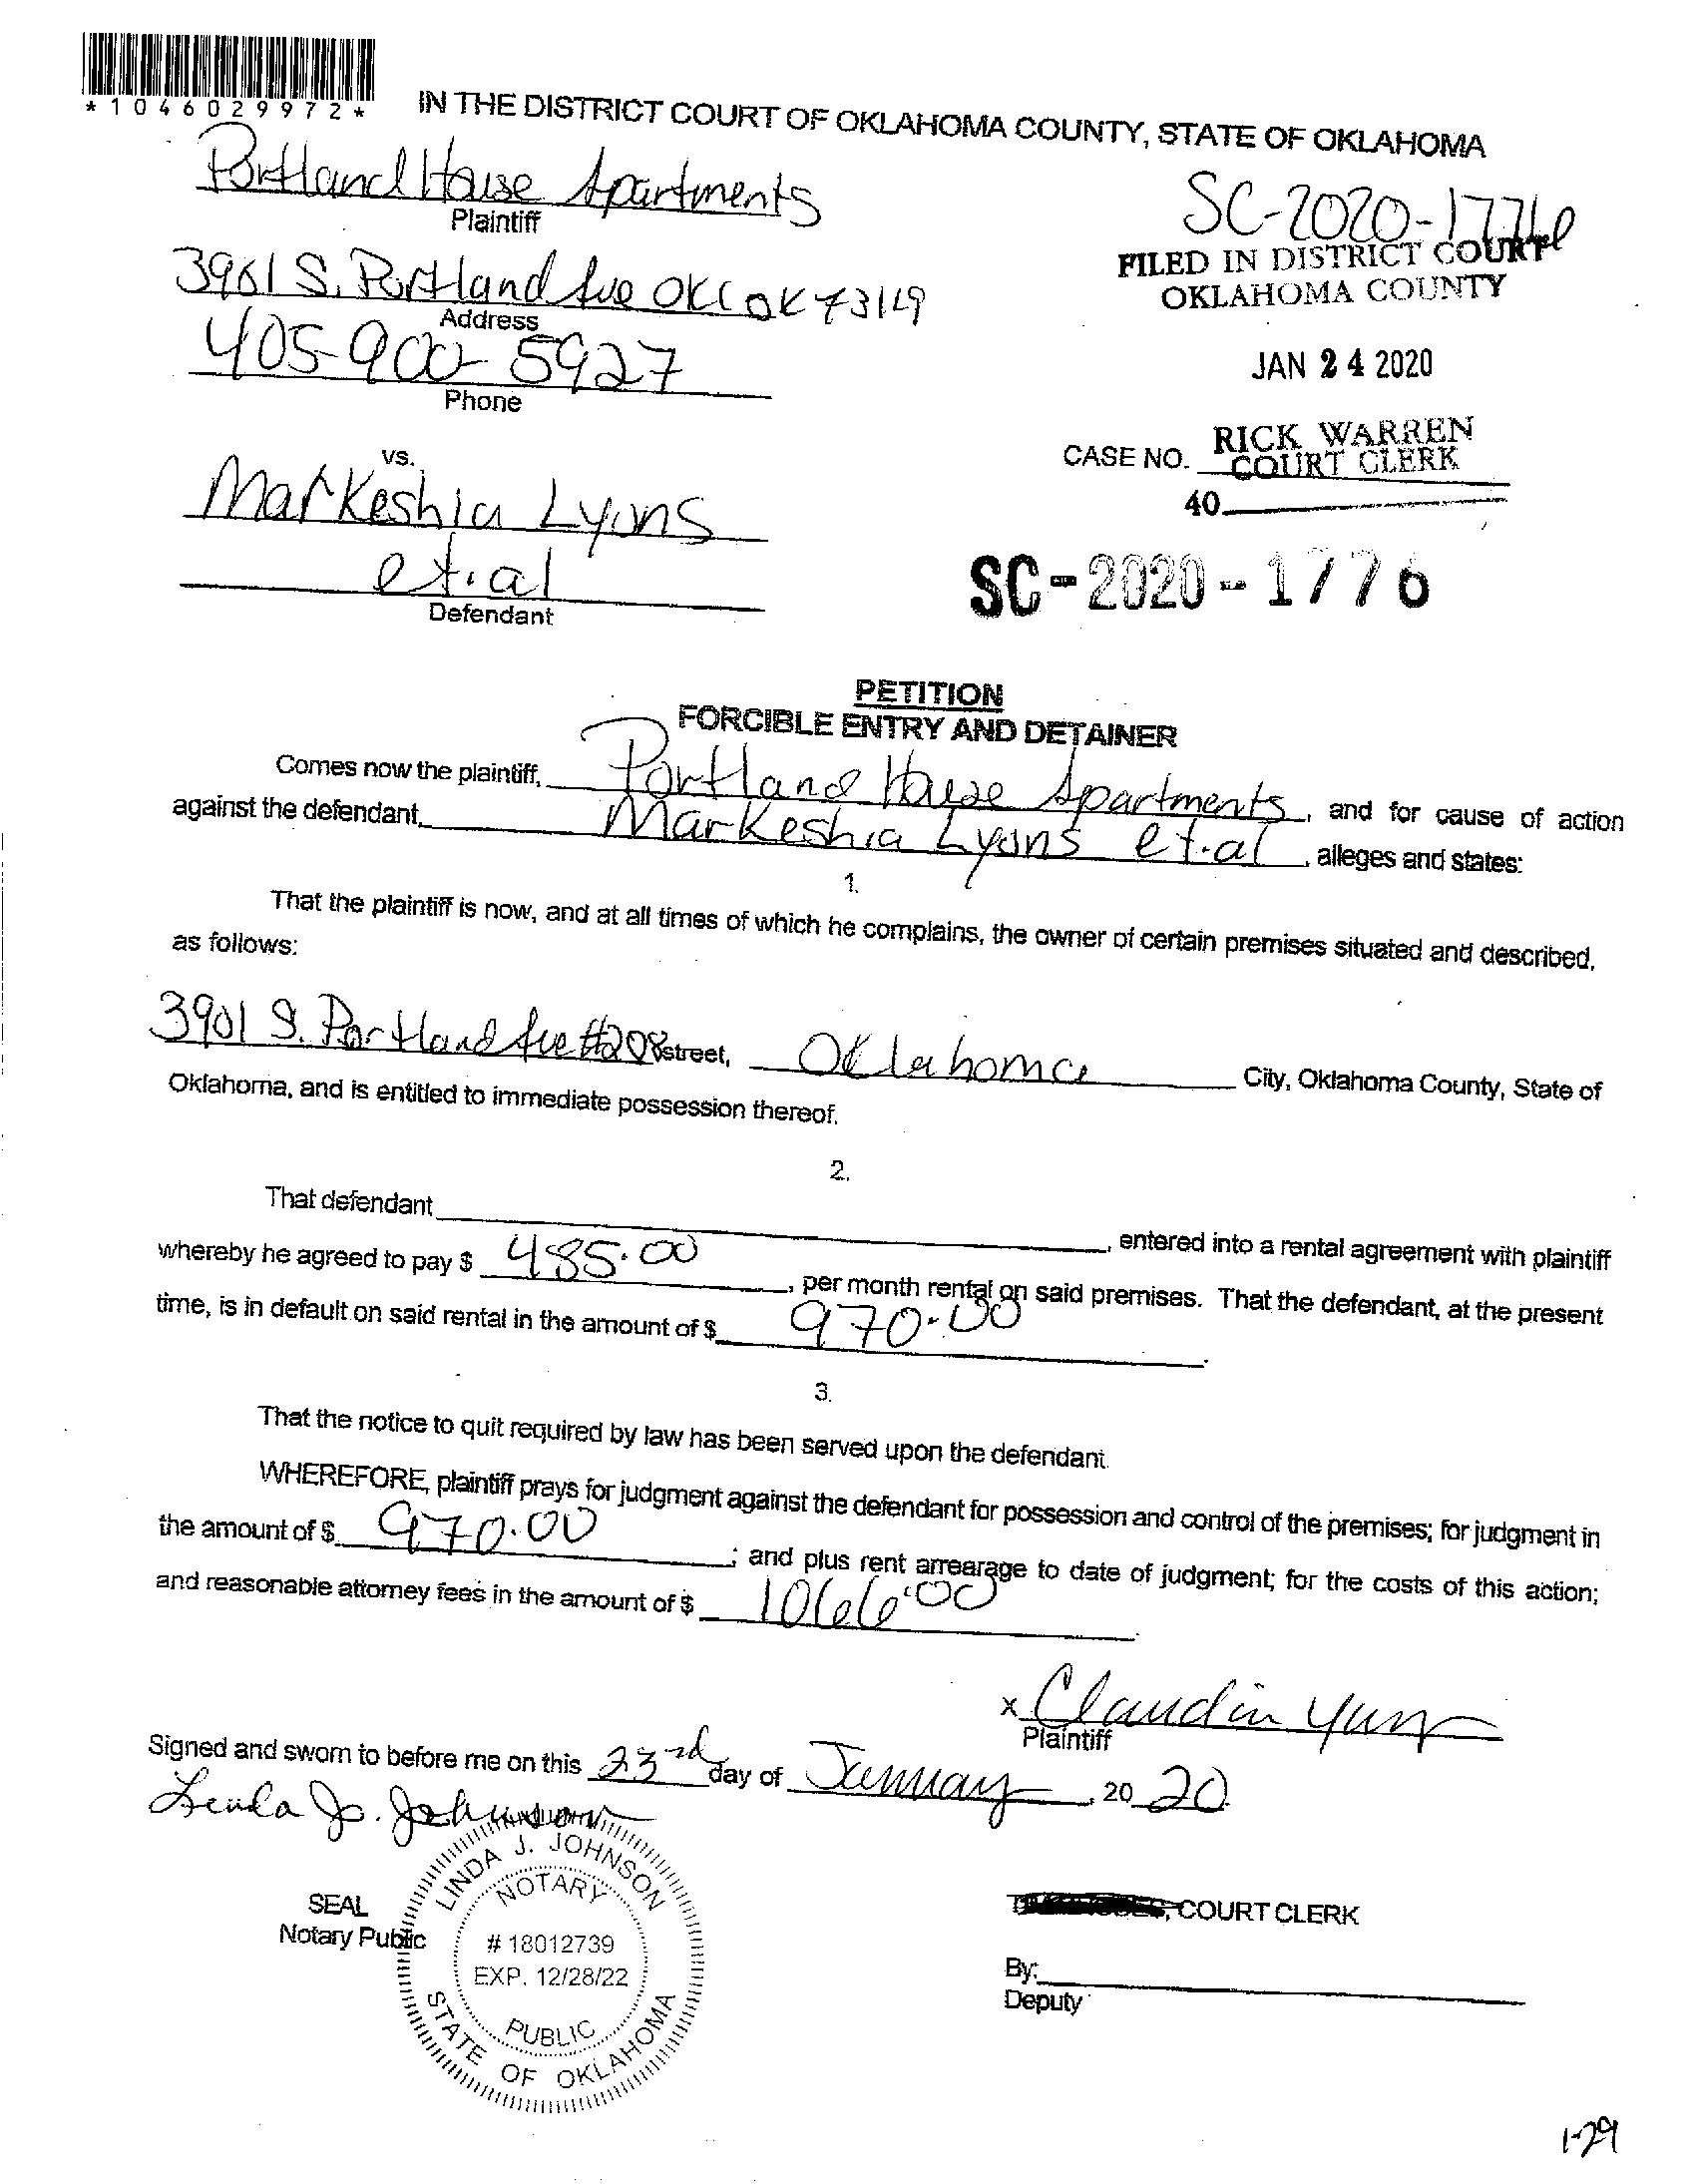 *1046029972*
IN THE DISTRICT COURT OF OKLAHOMA COUNTY, STATE OF OKLAHOMA
Portland House Apartments
Plaintiff
SC-2020-1776
FILED IN DISTRICT COURT
OKLAHOMA COUNTY
3901 S. Portland Ave OKC OK 73119
Address
405-900-5927
Phone
JAN 24 2020
RICK WARREN
CASE NO. COURT CLERK
40
vs.
Markeshia Lyons
et.al
Defendant
SC-2020-1776
PETITION
FORCIBLE ENTRY AND DETAINER
Comes now the plaintiff, Portland House Apartments, and for cause of action
against the defendant, Markeshia Lyons et.al, alleges and states:
1.
That the plaintiff is now, and at all times of which he complains, the owner of certain premises situated and described,
as follows:
3901 S. Portland Ave #208 street, Oklahoma City, Oklahoma County, State of
Oklahoma, and is entitled to immediate possession thereof.
2.
That defendant , entered into a rental agreement with plaintiff
whereby he agreed to pay $ 485.00, per month rental on said premises. That the defendant, at the present
time, is in default on said rental in the amount of $ 970.00.
3.
That the notice to quit required by law has been served upon the defendant.
WHEREFORE, plaintiff prays for judgment against the defendant for possession and control of the premises; for judgment in
the amount of $ 970.00; and plus rent arrearage to date of judgment; for the costs of this action;
and reasonable attorney fees in the amount of $ 1066.00.
x Claudin
Plaintiff
Signed and sworn to before me on this 23rd day of January, 2020.
Linda Jo. Johnson
LINDA J. JOHNSON
NOTARY
SEAL
Notary Public
# 18012739
EXP. 12/28/22
PUBLIC
STATE OF OKLAHOMA
, COURT CLERK
By:
Deputy
1-29